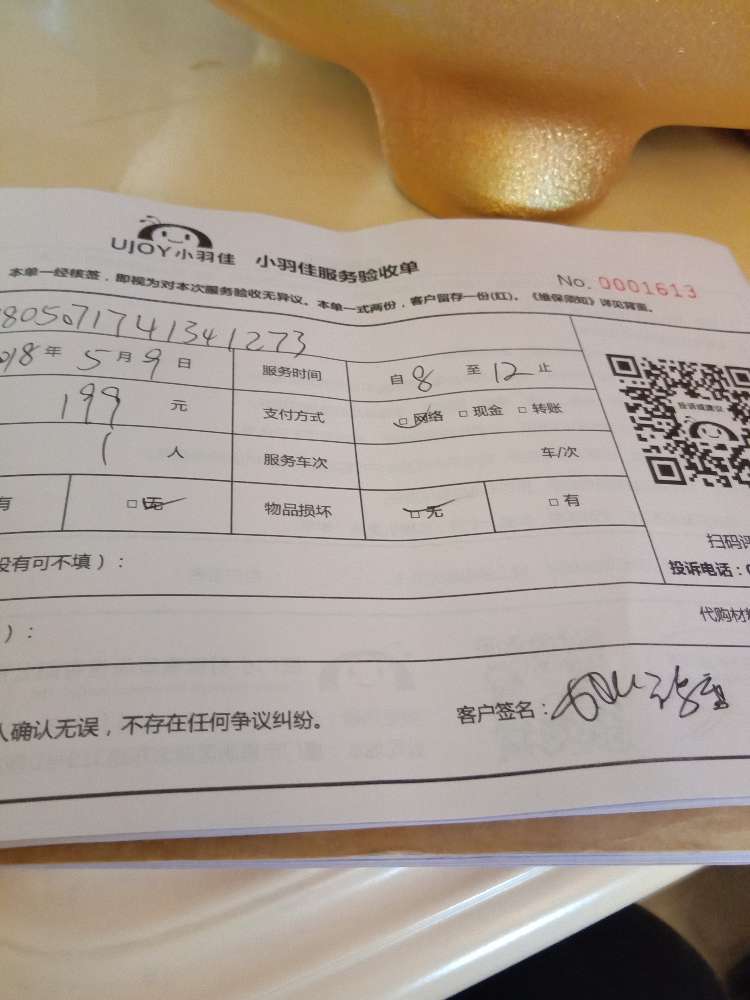 UJOY小羽佳 小羽佳服务验收单
No. 0001613
本单一经核签，即视为对本次服务验收无异议。本单一式两份，客户留存一份(红)。《维保须知》详见背面。
805071741341273
018年5月9日 服务时间 自8至12止
199元 支付方式 □网络 □现金 □转账
1人 服务车次 车/次
有 □无 物品损坏 □无 □有
投诉或建议
扫码评
没有可不填）：
投诉电话：0
代购材料
）：
人确认无误，不存在任何争议纠纷。
客户签名：